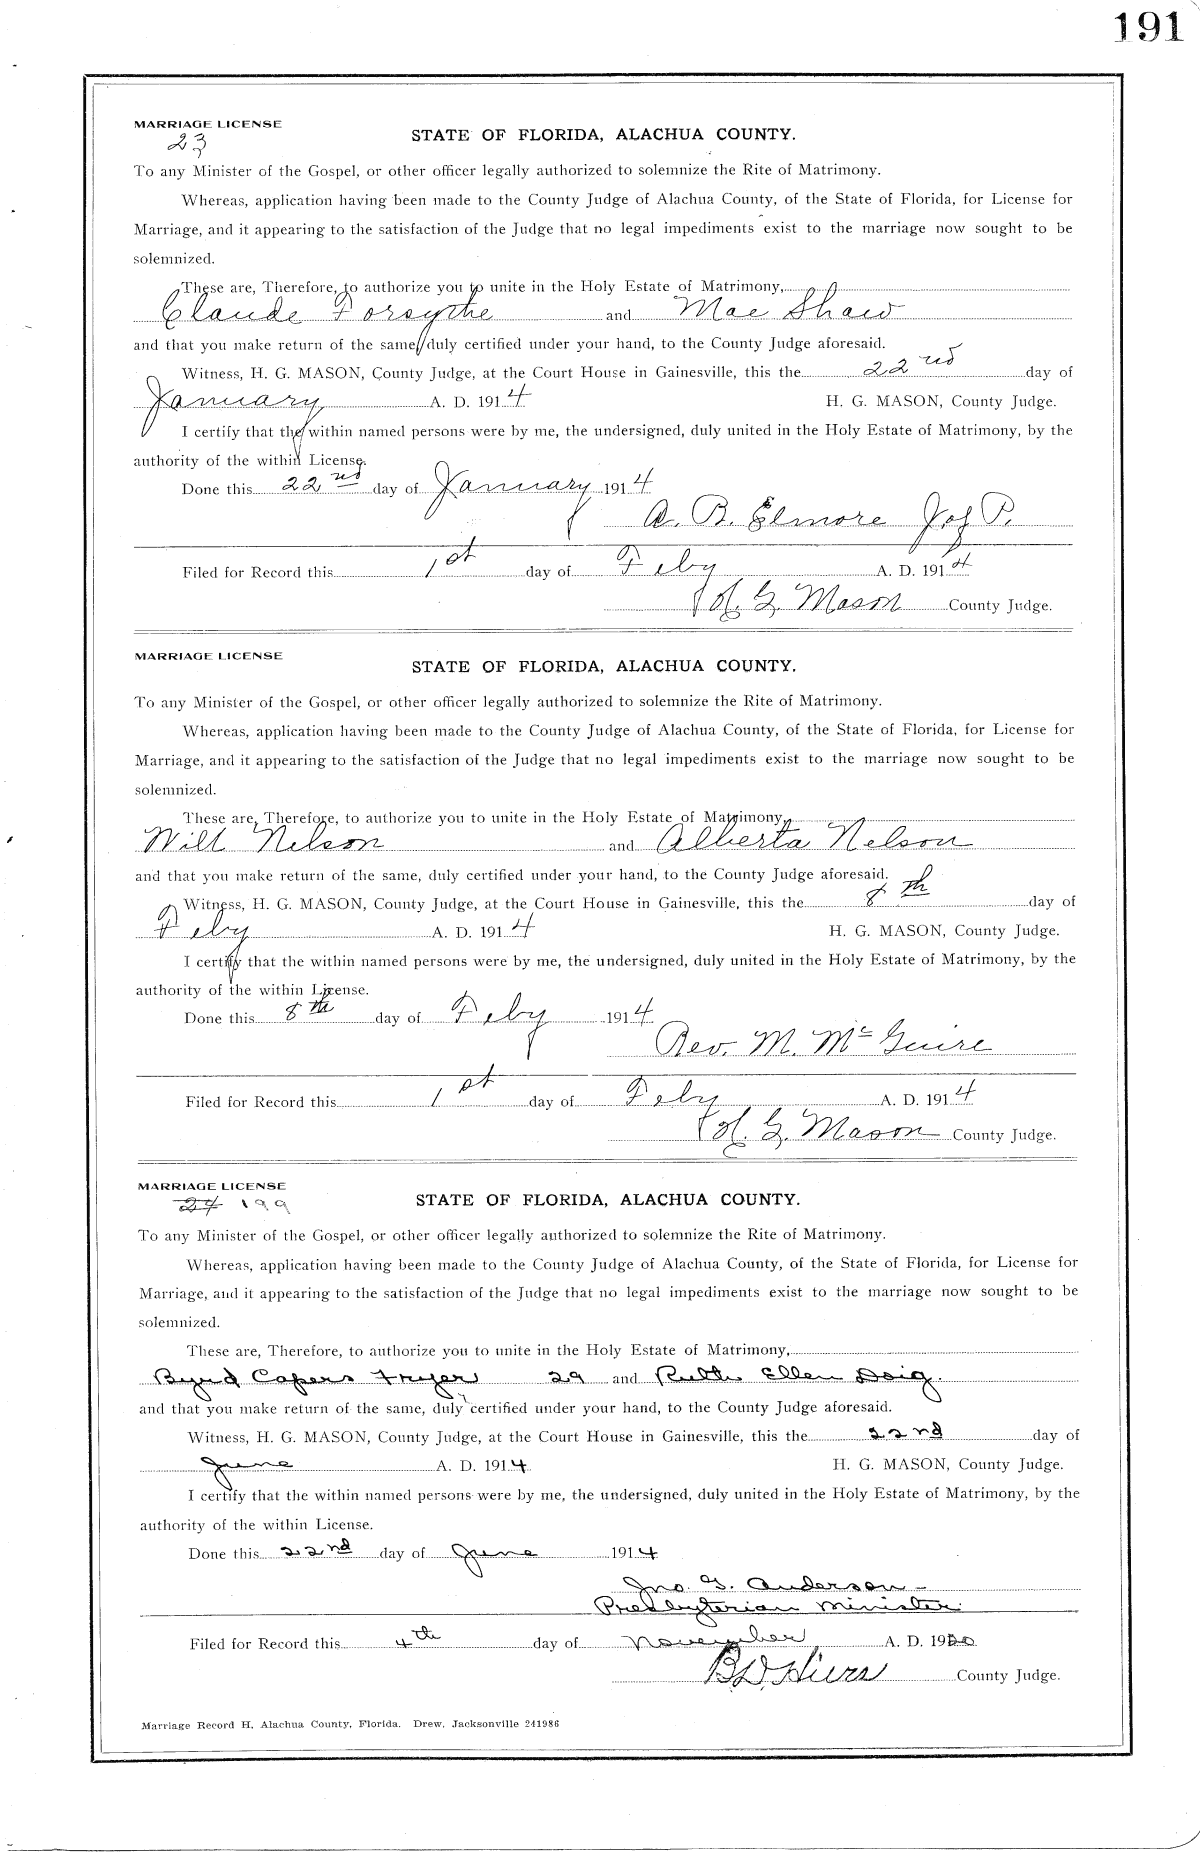 191
MARRIAGE LICENSE
23
STATE OF FLORIDA, ALACHUA COUNTY.
To any Minister of the Gospel, or other officer legally authorized to solemnize the Rite of Matrimony.
Whereas, application having been made to the County Judge of Alachua County, of the State of Florida, for License for
Marriage, and it appearing to the satisfaction of the Judge that no legal impediments exist to the marriage now sought to be
solemnized.
These are, Therefore, to authorize you to unite in the Holy Estate of Matrimony,
Claude Forsythe and Mae Shaw
and that you make return of the same, duly certified under your hand, to the County Judge aforesaid.
Witness, H. G. MASON, County Judge, at the Court House in Gainesville, this the 22nd day of
January A. D. 1914 H. G. MASON, County Judge.
I certify that the within named persons were by me, the undersigned, duly united in the Holy Estate of Matrimony, by the
authority of the within License.
Done this 22nd day of January 1914
A. B. Elmore J of P.
Filed for Record this 1st day of Feby A. D. 1914
H. G. Mason County Judge.
MARRIAGE LICENSE
STATE OF FLORIDA, ALACHUA COUNTY.
To any Minister of the Gospel, or other officer legally authorized to solemnize the Rite of Matrimony.
Whereas, application having been made to the County Judge of Alachua County, of the State of Florida, for License for
Marriage, and it appearing to the satisfaction of the Judge that no legal impediments exist to the marriage now sought to be
solemnized.
These are, Therefore, to authorize you to unite in the Holy Estate of Matrimony,
Will Nelson and Alberta Nelson
and that you make return of the same, duly certified under your hand, to the County Judge aforesaid.
Witness, H. G. MASON, County Judge, at the Court House in Gainesville, this the 8th day of
Feby A. D. 1914 H. G. MASON, County Judge.
I certify that the within named persons were by me, the undersigned, duly united in the Holy Estate of Matrimony, by the
authority of the within License.
Done this 8th day of Feby 1914
Rev. M. McGuire
Filed for Record this 1st day of Feby A. D. 1914
H. G. Mason County Judge.
MARRIAGE LICENSE
24 199
STATE OF FLORIDA, ALACHUA COUNTY.
To any Minister of the Gospel, or other officer legally authorized to solemnize the Rite of Matrimony.
Whereas, application having been made to the County Judge of Alachua County, of the State of Florida, for License for
Marriage, and it appearing to the satisfaction of the Judge that no legal impediments exist to the marriage now sought to be
solemnized.
These are, Therefore, to authorize you to unite in the Holy Estate of Matrimony,
Byrd Capers Fryer 29 and Ruth Ellen Doig.
and that you make return of the same, duly certified under your hand, to the County Judge aforesaid.
Witness, H. G. MASON, County Judge, at the Court House in Gainesville, this the 22nd day of
June A. D. 1914 H. G. MASON, County Judge.
I certify that the within named persons were by me, the undersigned, duly united in the Holy Estate of Matrimony, by the
authority of the within License.
Done this 22nd day of June 1914
Jno. G. Anderson -
Presbyterian Minister.
Filed for Record this 4th day of November A. D. 1920
B D Hiers County Judge.
Marriage Record H, Alachua County, Florida. Drew, Jacksonville 241986